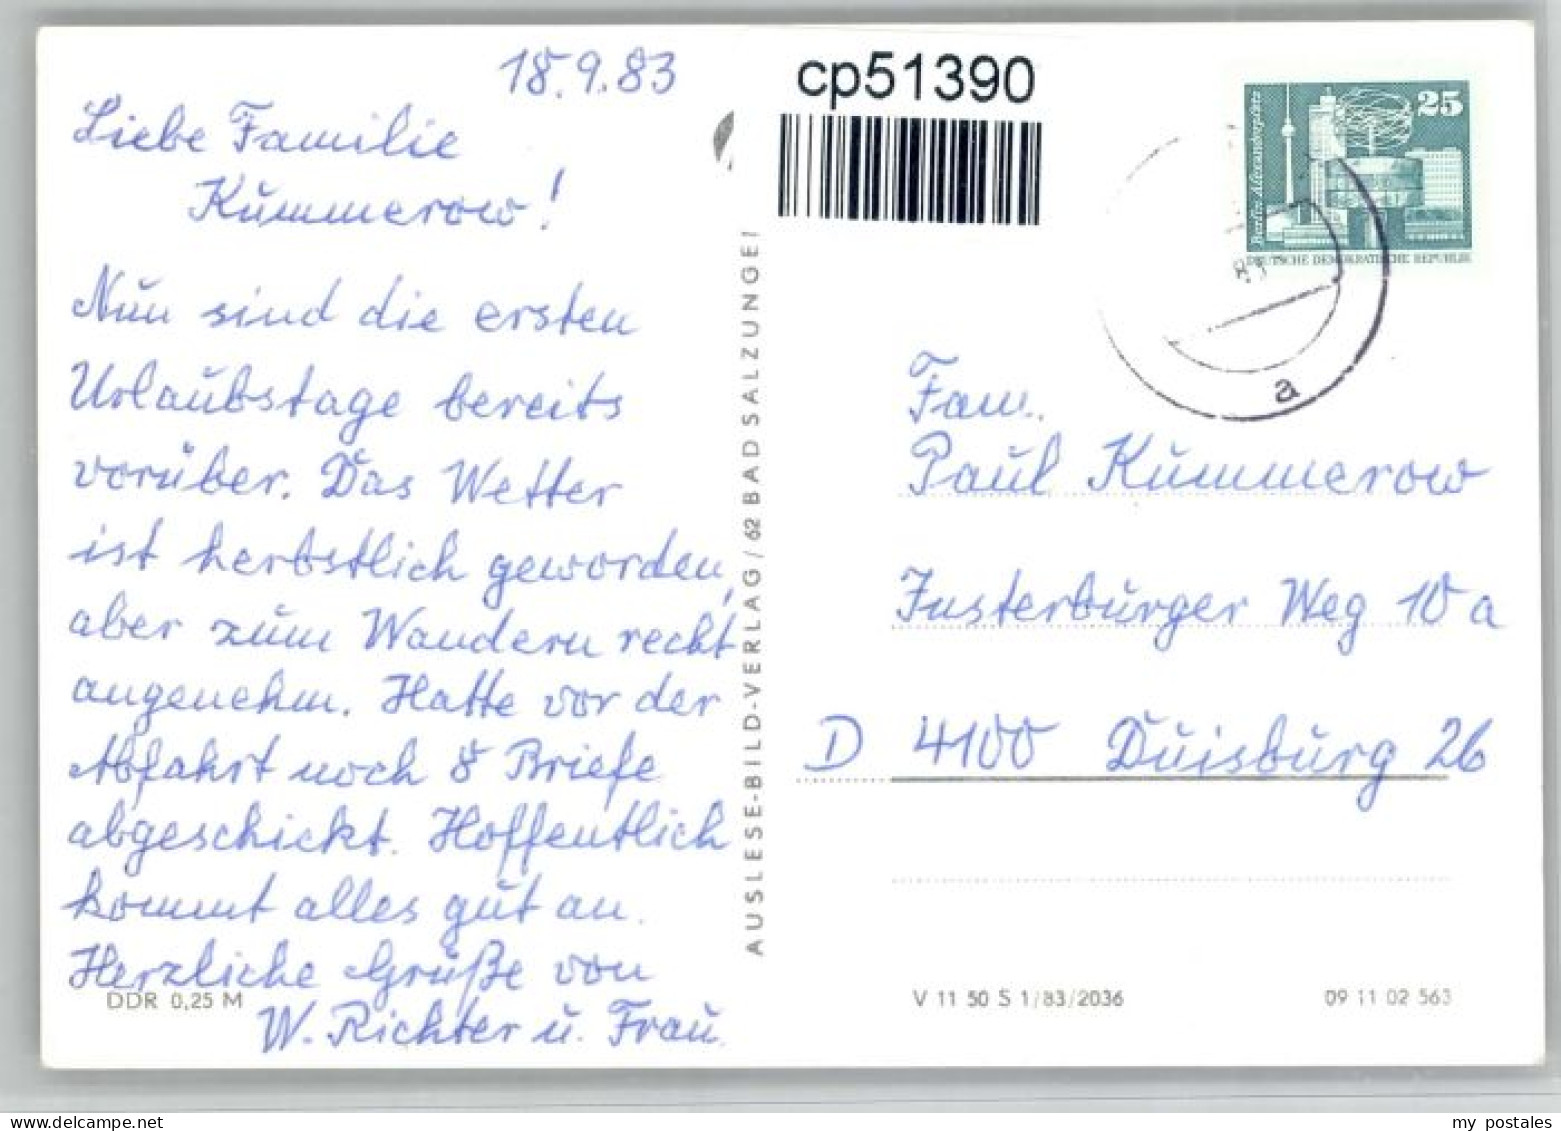 18.9.83
Liebe Familie
Kummerow!
Nun sind die ersten
Urlaubstage bereits
vorüber. Das Wetter
ist herbstlich geworden,
aber zum Wandern recht
angenehm. Hatte vor der
Abfahrt noch 8 Briefe
abgeschickt. Hoffentlich
kommt alles gut an.
Herzliche Grüße von
W. Richter u. Frau
DDR 0,25 M
AUSLESE-BILD-VERLAG / 62 BAD SALZUNGEN
cp51390
25
Berlin, Alexanderplatz
DEUTSCHE DEMOKRATISCHE REPUBLIK
83
a
Fam.
Paul Kummerow
Insterburger Weg 10 a
D 4100 Duisburg 26
V 11 50 S 1/83/2036
09 11 02 563
my postales